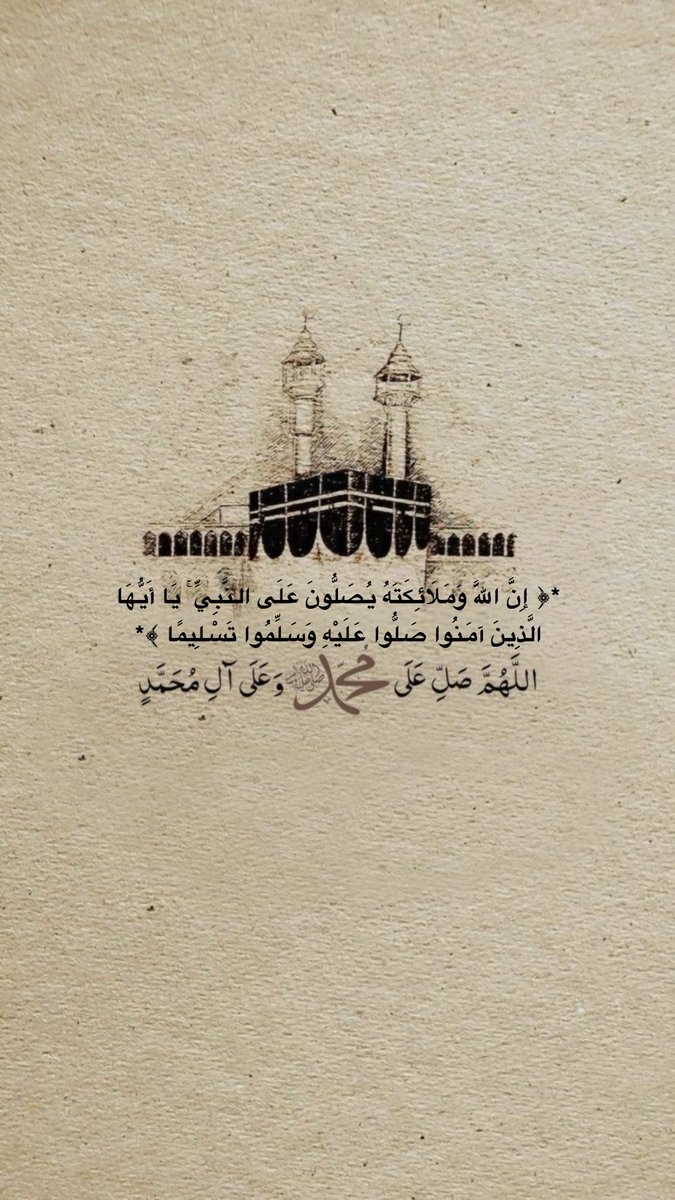 *﴿ إِنَّ اللَّهَ وَمَلَائِكَتَهُ يُصَلُّونَ عَلَى النَّبِيِّ ۚ يَا أَيُّهَا
الَّذِينَ آمَنُوا صَلُّوا عَلَيْهِ وَسَلِّمُوا تَسْلِيمًا ﴾*
اللَّهُمَّ صَلِّ عَلَى محمد ﷺ وَعَلَى آلِ مُحَمَّدٍ